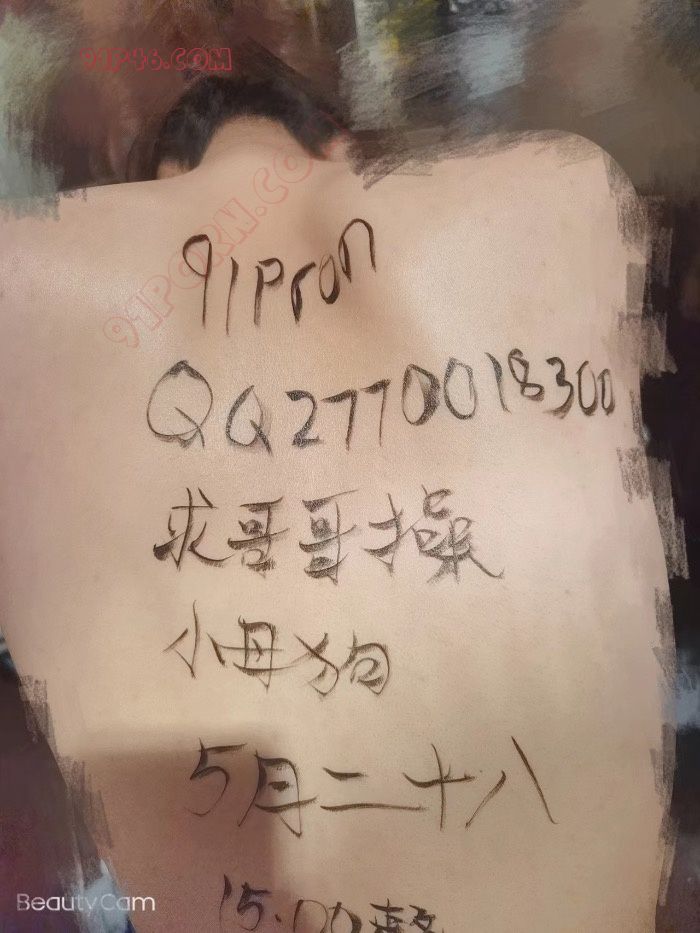 91P46.COM
91PORN.COM
91Pron
QQ2770018300
求哥哥操
小母狗
5月二十八
15:00
BeautyCam